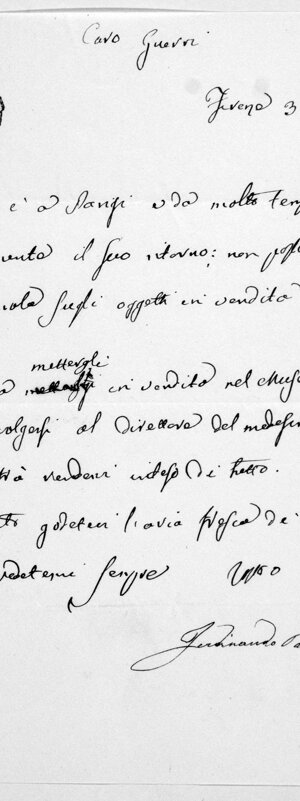 Caro Guerri
Firenze 3
è a Parigi e da molto temp
il suo ritorno: non poss
sugli oggetti in vendita
mettergli
in vendita nel Muse
olgersi al Direttore del medesim
trà rendervi inteso di tutto.
godetevi l'aria fresca di
edetemi sempre Vostro
Ferdinando Pa